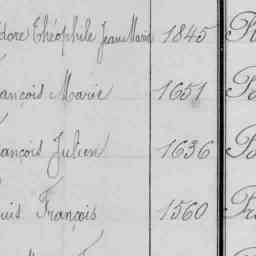 dore Théophile Jean Marie 1845
ançois Marie 1651
ançois Julien 1636
uis François 1560